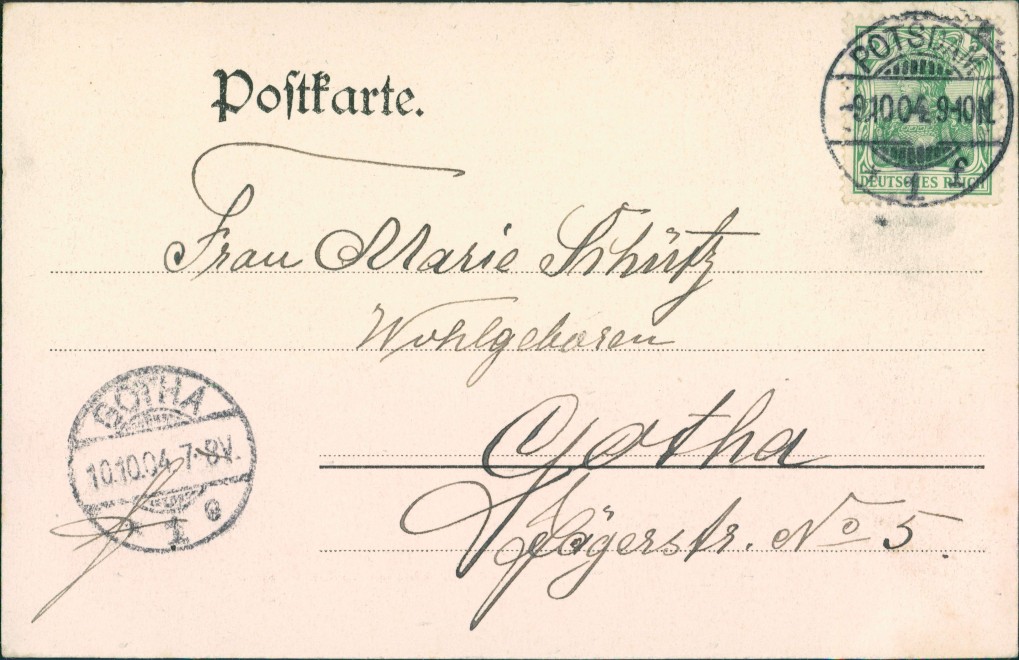 Postkarte.
POTSDAM
9.10.04. 9-10N.
* 1 f
DEUTSCHES REICH
Frau Marie Schütz
Wohlgeboren
Gotha
Jägerstr. No 5.
GOTHA
10.10.04. 7-8V.
* 1 e